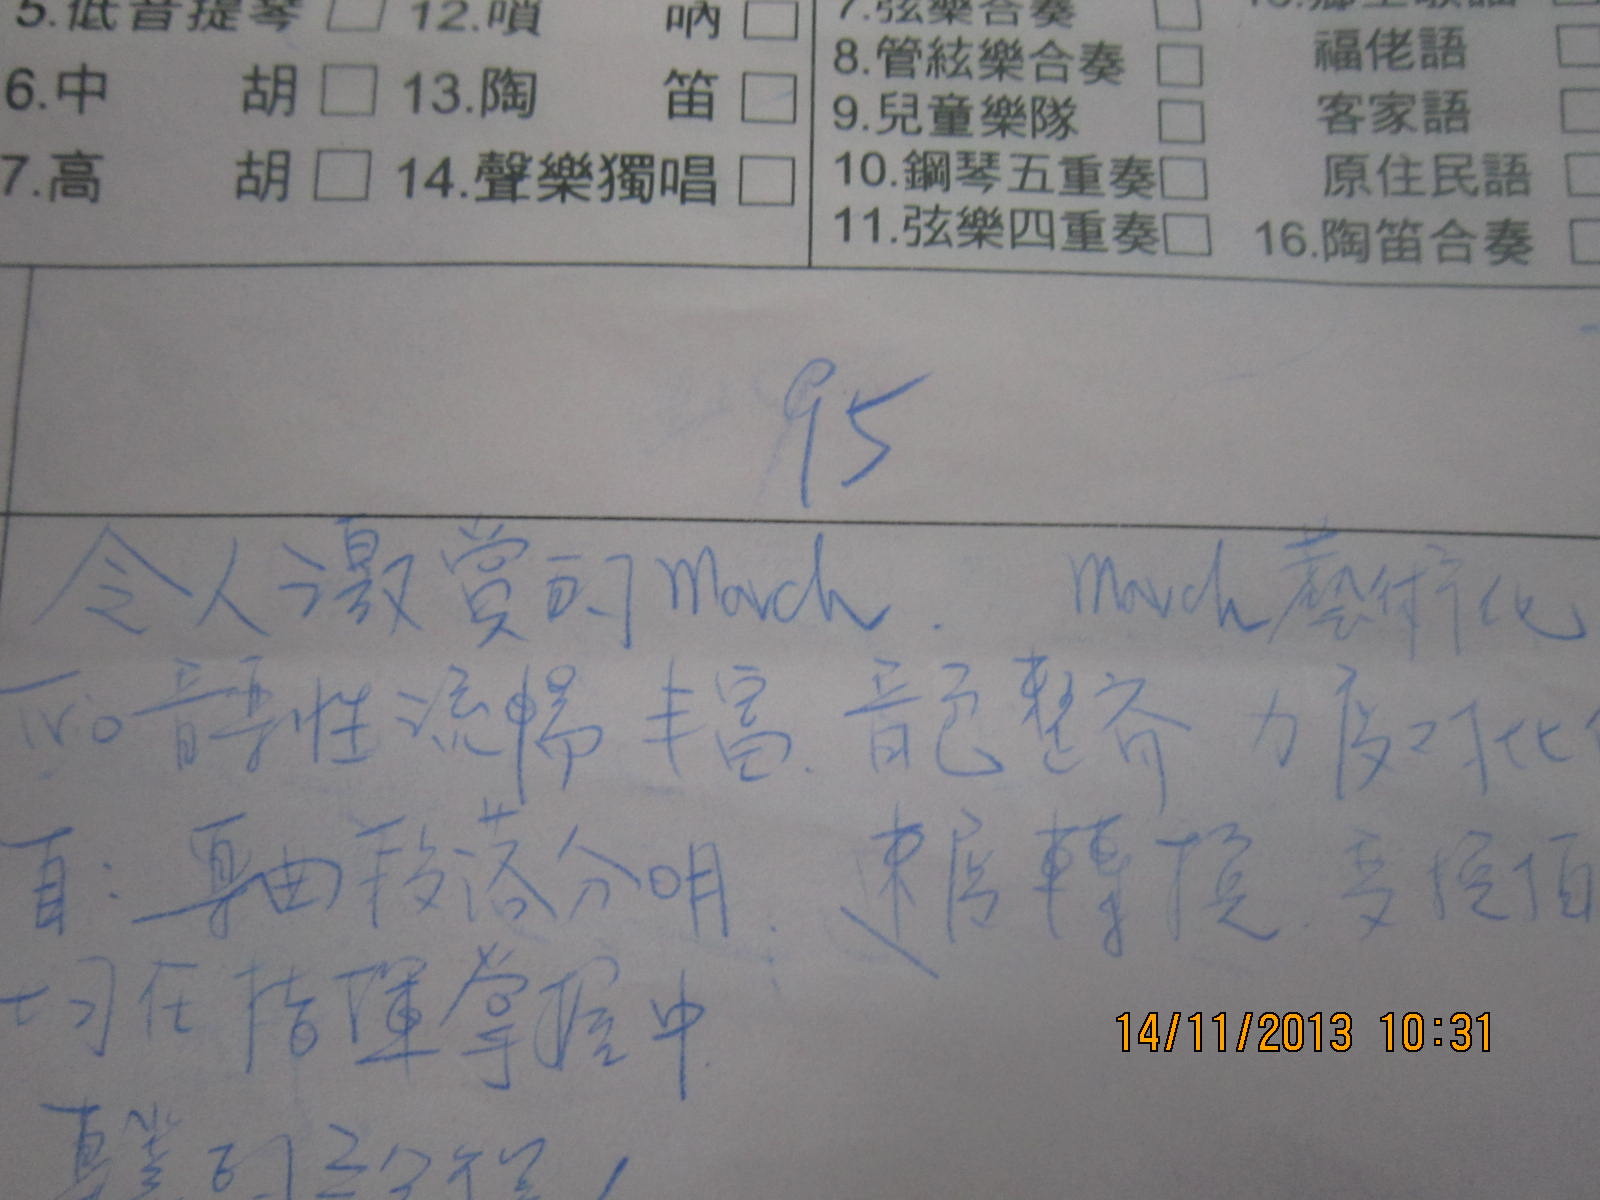 5.低音提琴 □ 12.嗩 吶 □
6.中 胡 □ 13.陶 笛 □
7.高 胡 □ 14.聲樂獨唱 □
7.弦樂合奏 □
8.管絃樂合奏 □
9.兒童樂隊 □
10.鋼琴五重奏 □
11.弦樂四重奏 □
福佬語 □
客家語 □
原住民語 □
16.陶笛合奏 □
95
令人激賞的 March. March 藝術化
音樂性流暢 丰富. 音色整齊 力度对比
直: 段落分明. 速度轉換.
切在指揮掌握中.
14/11/2013 10:31
的